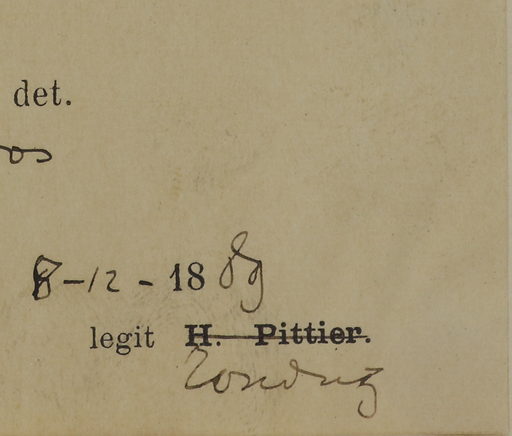 det.
os
8-12 - 1889
legit H. Pittier.
Tonduz